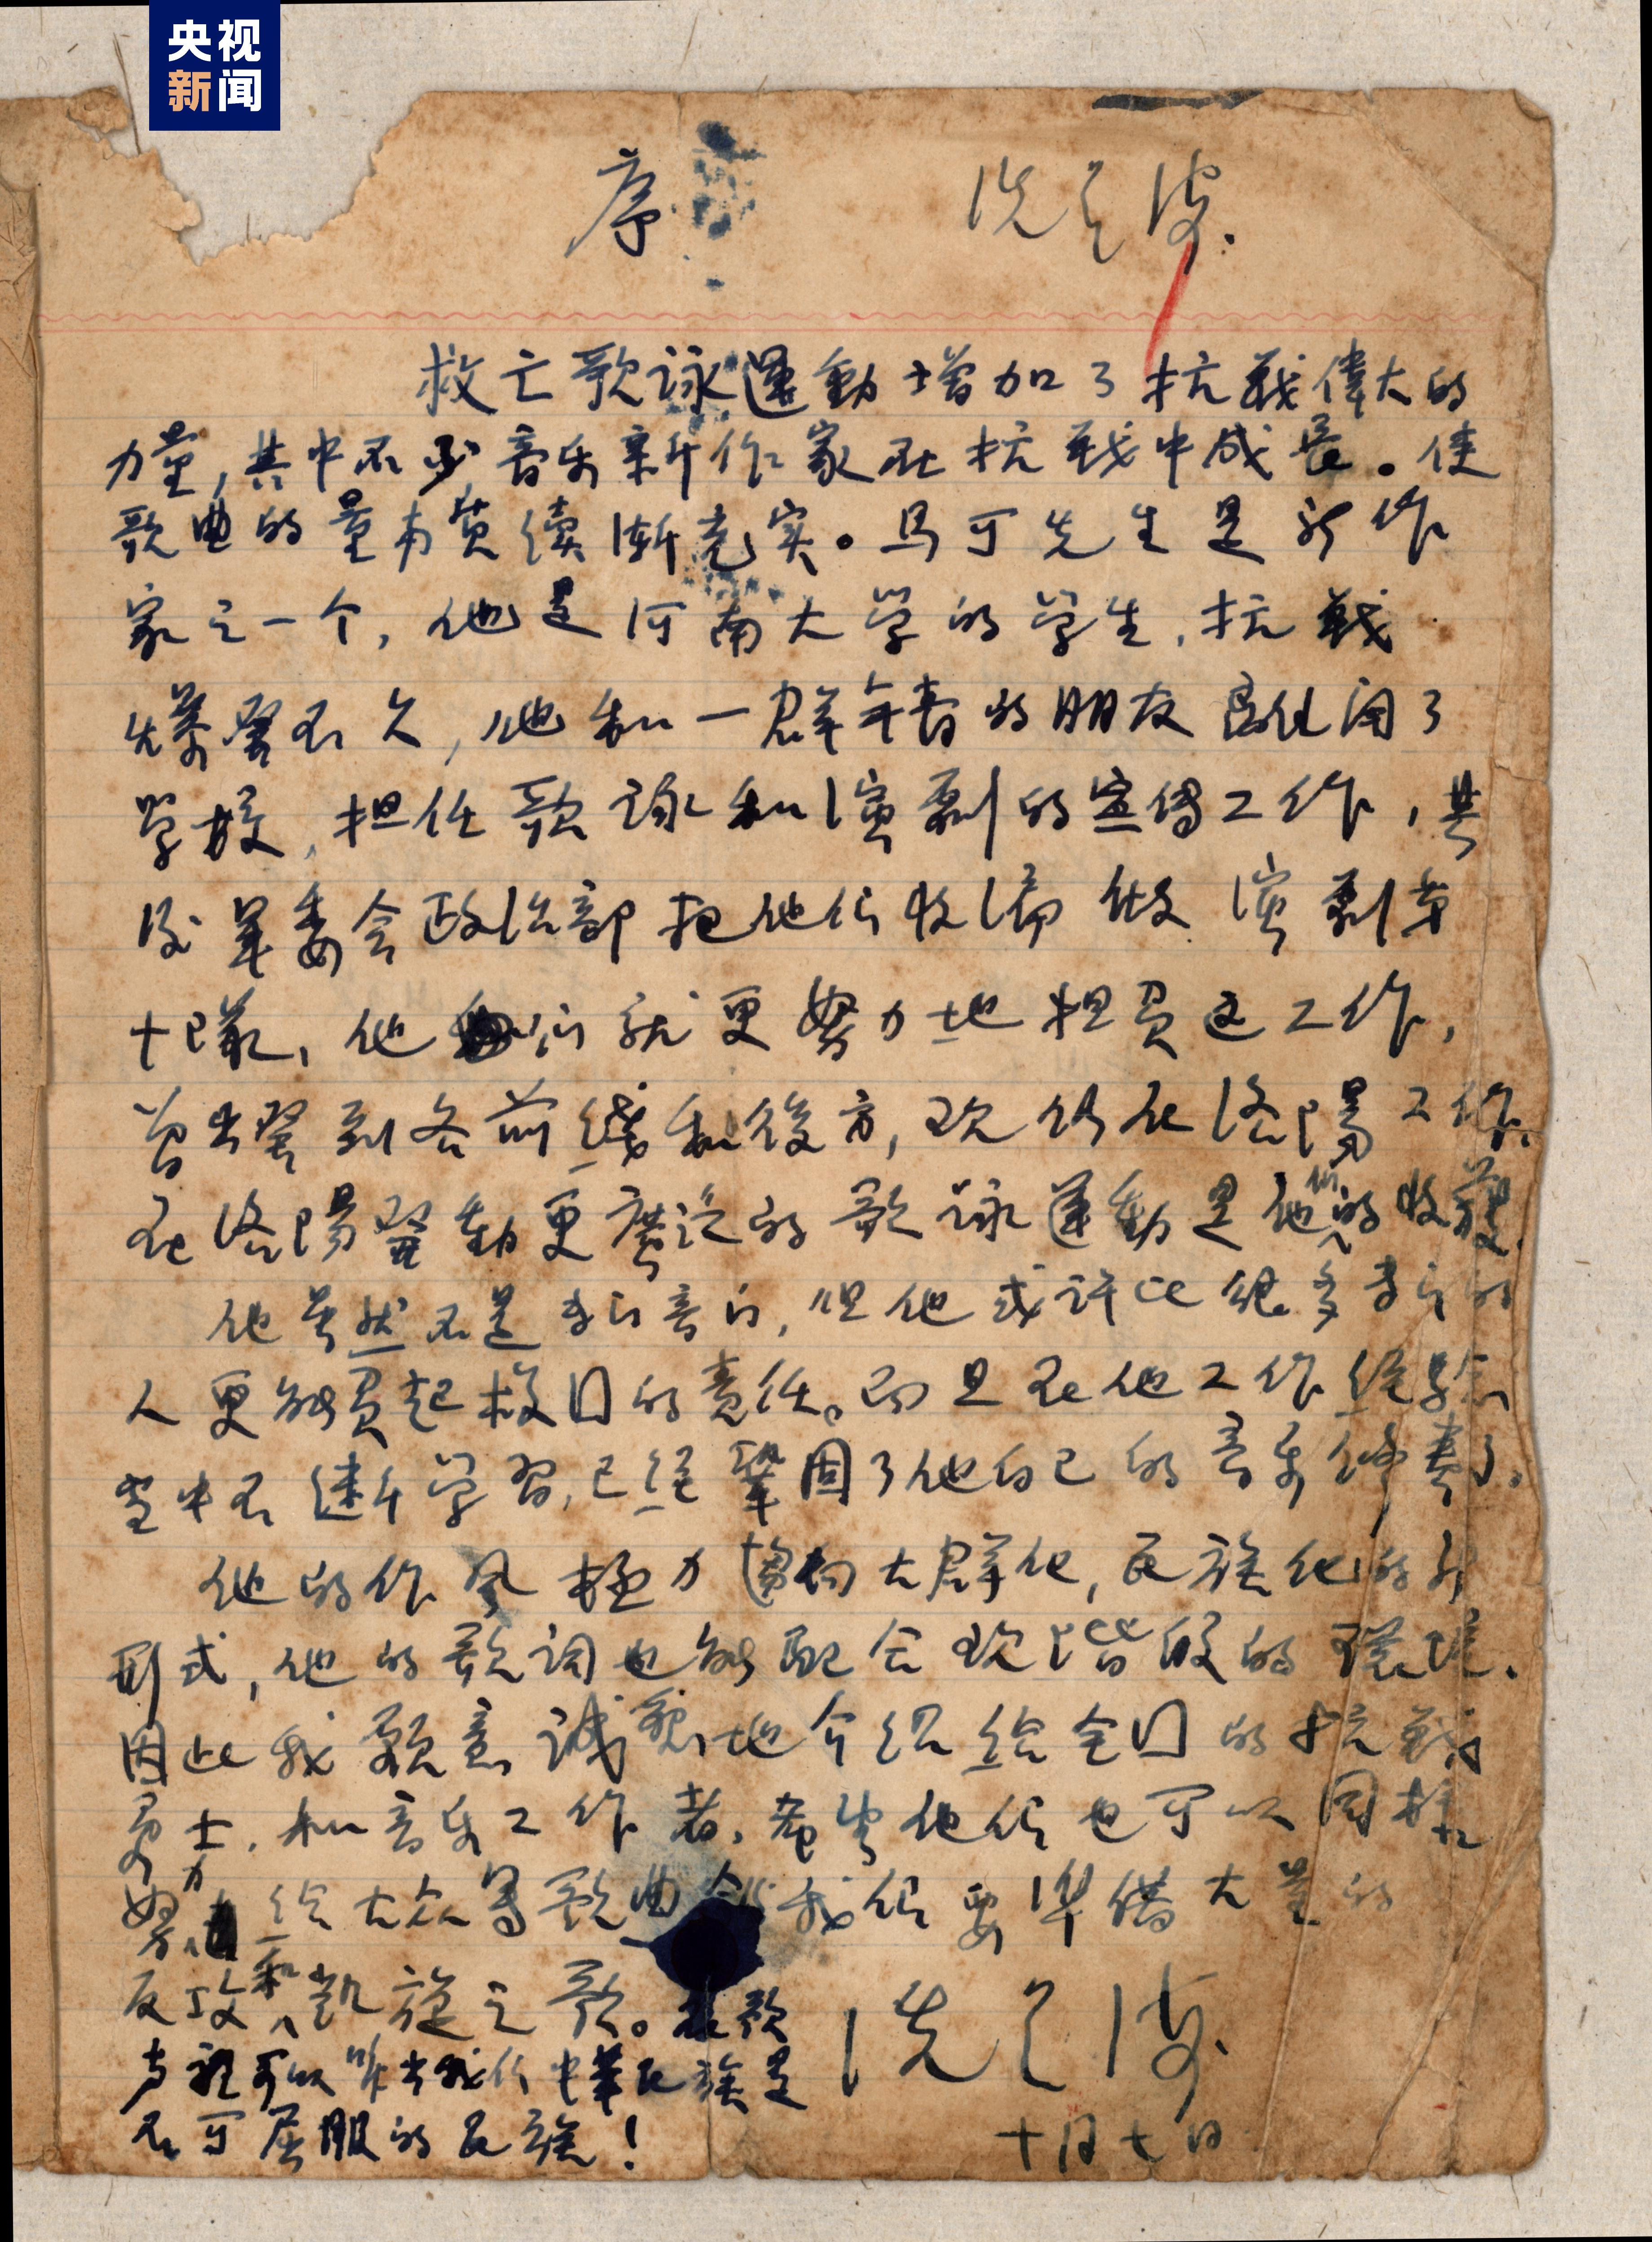 央视
新闻
序 冼星海.
救亡歌詠運動增加了抗戰偉大的
力量,其中不少音乐新作家在抗戰中成長。使
歌曲的量与质續漸充实。马可先生是新作
家之一个,他是河南大学的学生,抗戰
爆發不久,他和一群年青的朋友离開了
學校,担任歌詠和演剧的宣傳工作,其
後軍委会政治部把他们收编做演剧第
十隊,他们就更努力地担負这工作,
曾出發到各前線和後方,现仍在洛陽工作.
在洛陽發動更廣泛的歌詠運動是他们的收獲.
他虽然不是专门音乐,但他或许比很多专门的
人更能負起救国的責任。而且在他工作经验
当中不断学習,已经鞏固了他自己的音乐修养了.
他的作风极力傾向大群化,民族化的新
形式,他的歌词也能配合现階段的環境.
因此我願意誠懇地介绍给全国的抗戰
勇士,和音乐工作者,希望他们也可以同样
努力给大众写歌曲,我们要準備大量的
反攻和凯旋之歌。在歌
声裡可以唱出我们中華民族是
不可屈服的民族!
冼星海.
十月七日